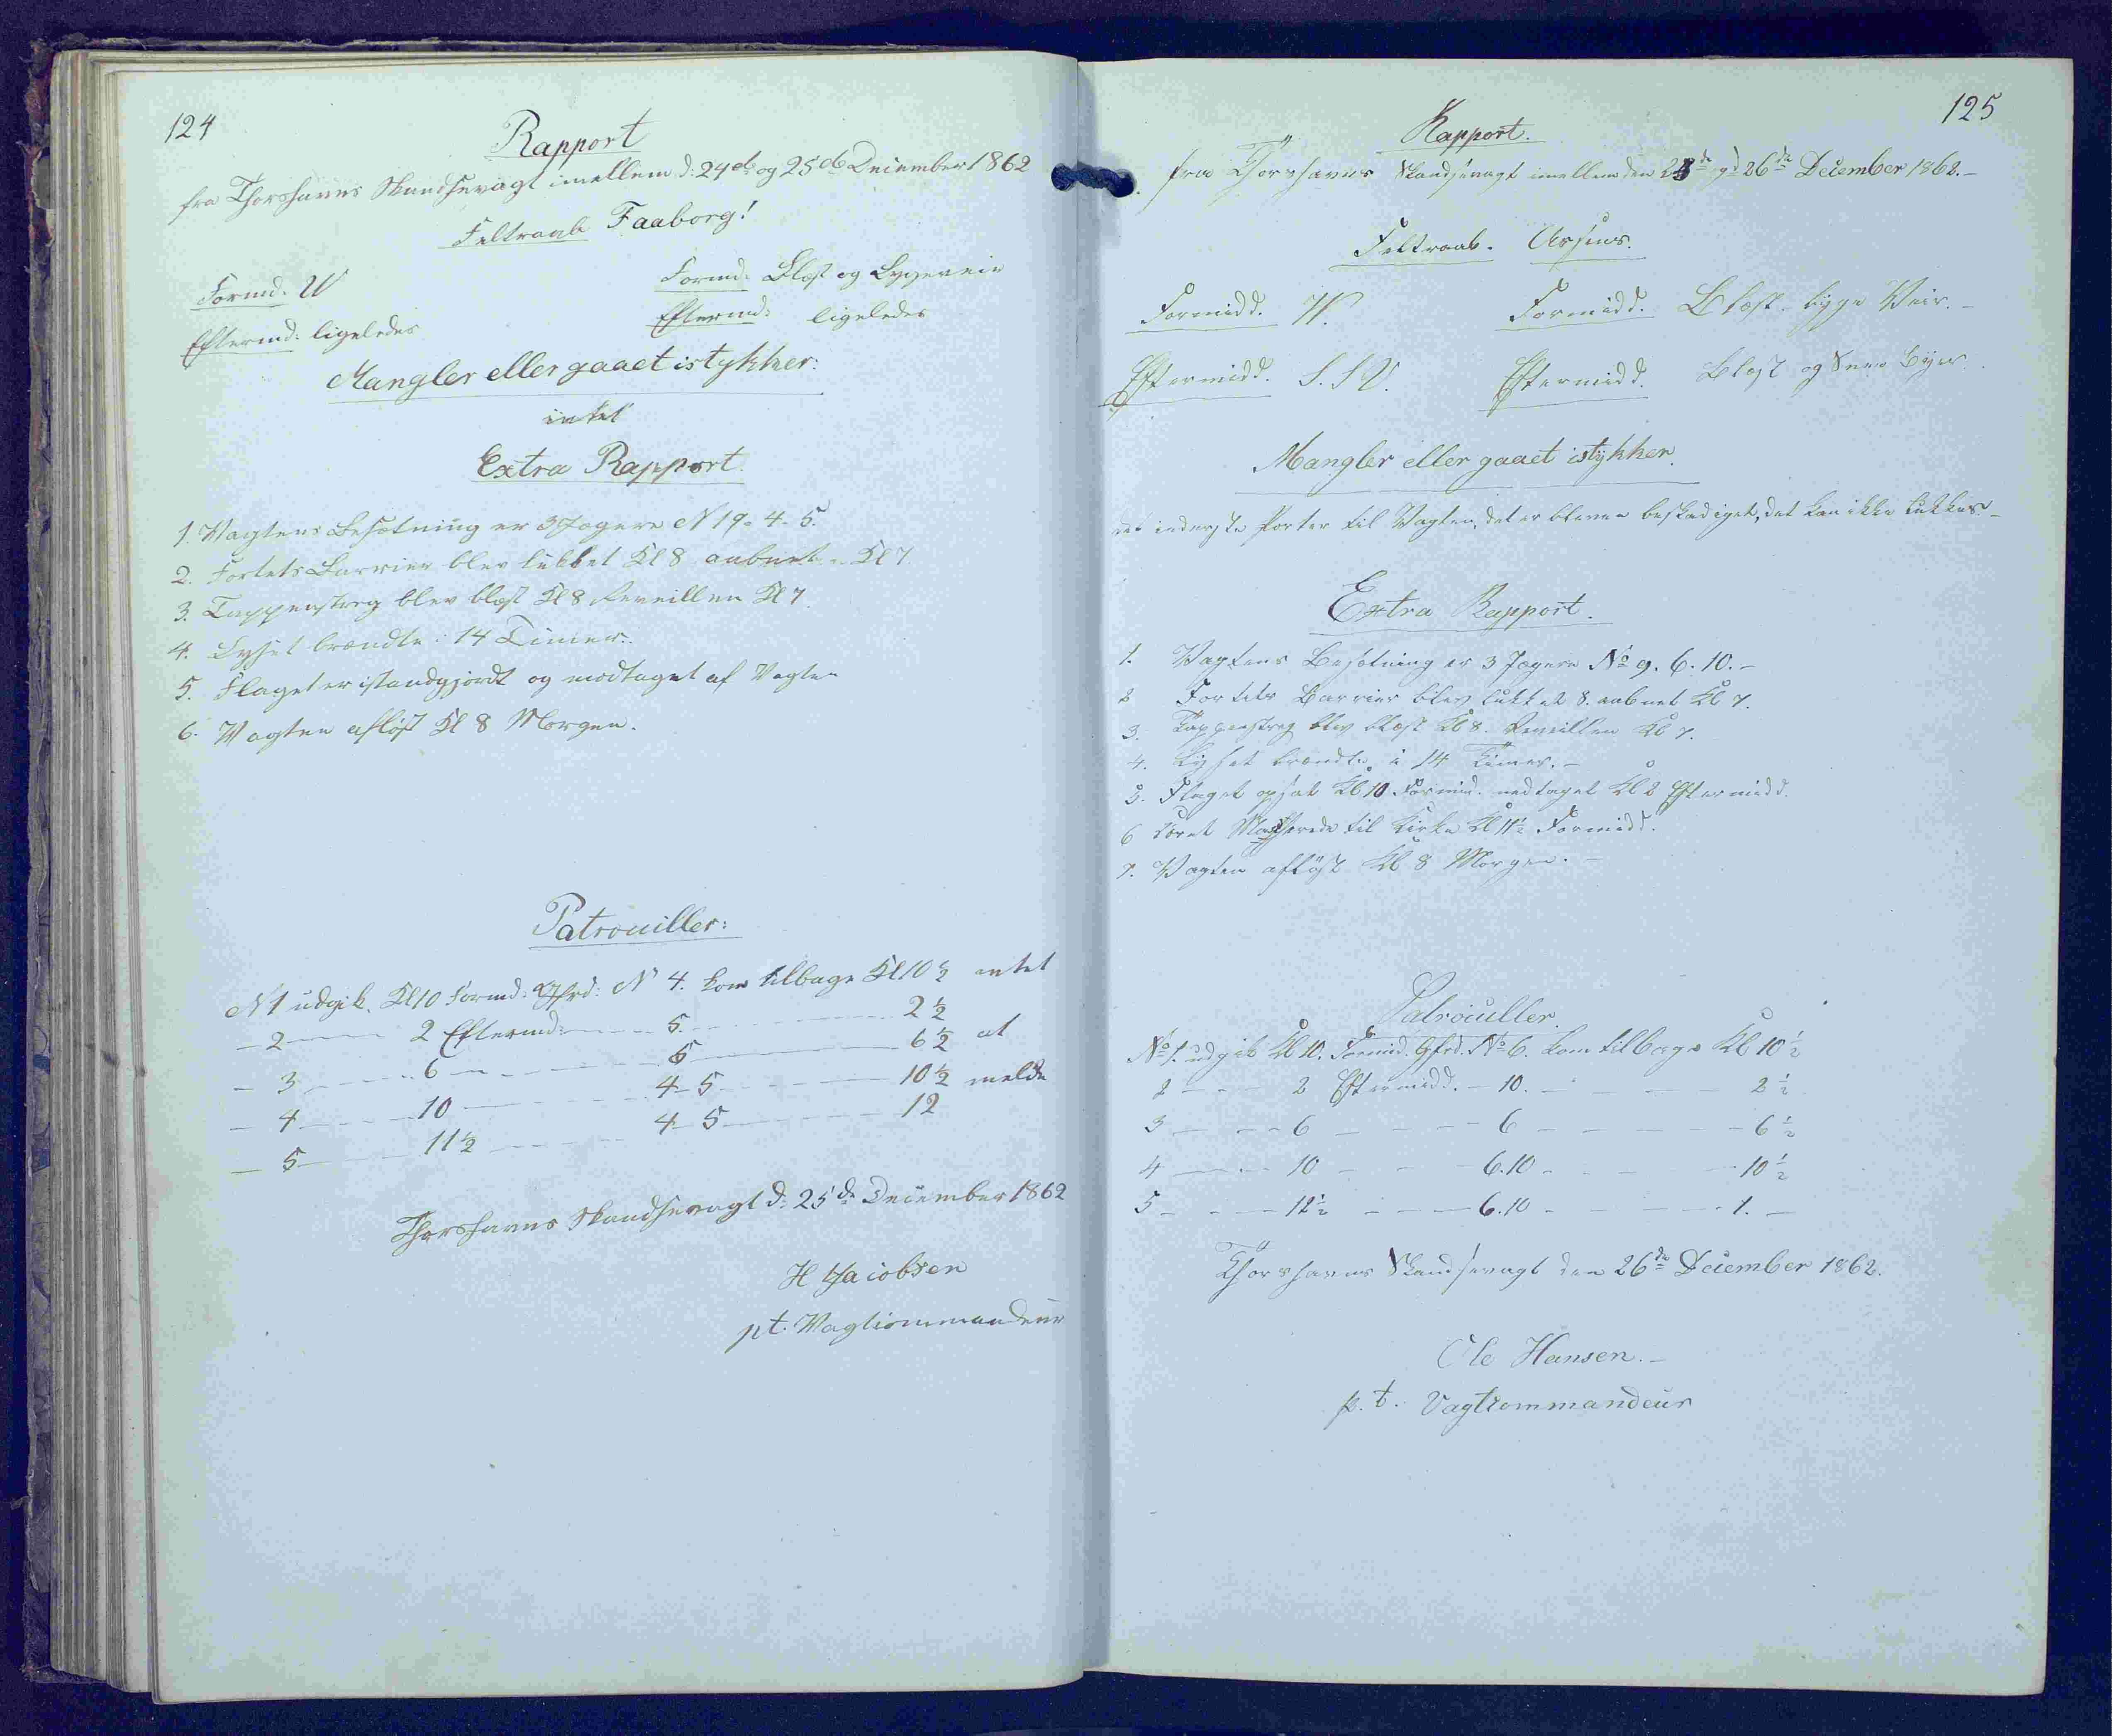 124
Rapport
fra Thorshavns Skandsevagt imellem d: 24de og 25de December 1862
Feltraab Faaborg!
Formd. V
Formd: Blæst og Bygeveir
Eftermd: ligeledes
Eftermd: ligeledes
Mangler eller gaaet istykker:
intet
Extra Rapport.
1. Vagtens Besætning er 3 Jægere N 19. 4. 5.
2. Fortets Barrier blev lukket Kl 8 aabnet Kl 7
3. Tappenstreg blev blæst Kl 8 Reveillen Kl 7.
4. Lyset brændte i 14 Timer.
5. Flaget er istandgjordt og modtaget af Vagten
6. Vagten afløst Kl 8 Morgen.
Patrouiller:
N 1 udgik. Kl 10 Formd: Gfrd: N 4. kom tilbage Kl 10 ½ intet
- 2 - 2 Eftermd: - 5. - 2 ½
- 3 - 6 - 5 - 6 ½ at
- 4 - 10 - 4-5 - 10 ½ melde
- 5 - 11 ½ - 4-5 - 12
Thorshavns Skandsevagt d: 25de December 1862
H Jacobsen
pt. Vagtcommandeur
125
Rapport.
fra Thorshavns Skandsevagt imellem den 25de og 26de December 1862.-
Feltraab. Assens.
Formidd. V.
Formidd. Blæst. bygge Veir.-
Eftermidd. S.S.V.
Eftermidd. Blæst og Snee Byer.
Mangler eller gaaet istykker.
inderste Porter til Vagten, det er bleven beskadiget, det kan ikke lukkes-
Extra Rapport.
1. Vagtens Besætning er 3 Jægere No 9. 6. 10.-
2 Fortets Barrier blev lukket 8. aabnet Kl 7.
3. Tappenstreg blev blæst Kl 8. Reveillen Kl 7.
4. Lyset brændte i 14 Timer.-
5. Flaget opsat Kl 10 Formid. nedtaget Kl 2 Eftermidd.
6 Coret Marserede til Kirke Kl 11½ Formidd.
7. Vagten afløst Kl 8 Morgen.-
Patrouiller.
No 1. udgik Kl 10. Formid. Gfrd. No 6. kom tilbage Kl 10 ½
2 - 2 Eftermidd. - 10. - 2 ½
3 - 6 - 6 - 6 ½
4 - 10 - 6.10 - 10 ½
5 - 12 ½ - 6.10 - 1.-
Thorshavns Skandsevagt den 26de December 1862.
Ole Hansen.-
p.t. Vagtcommandeur